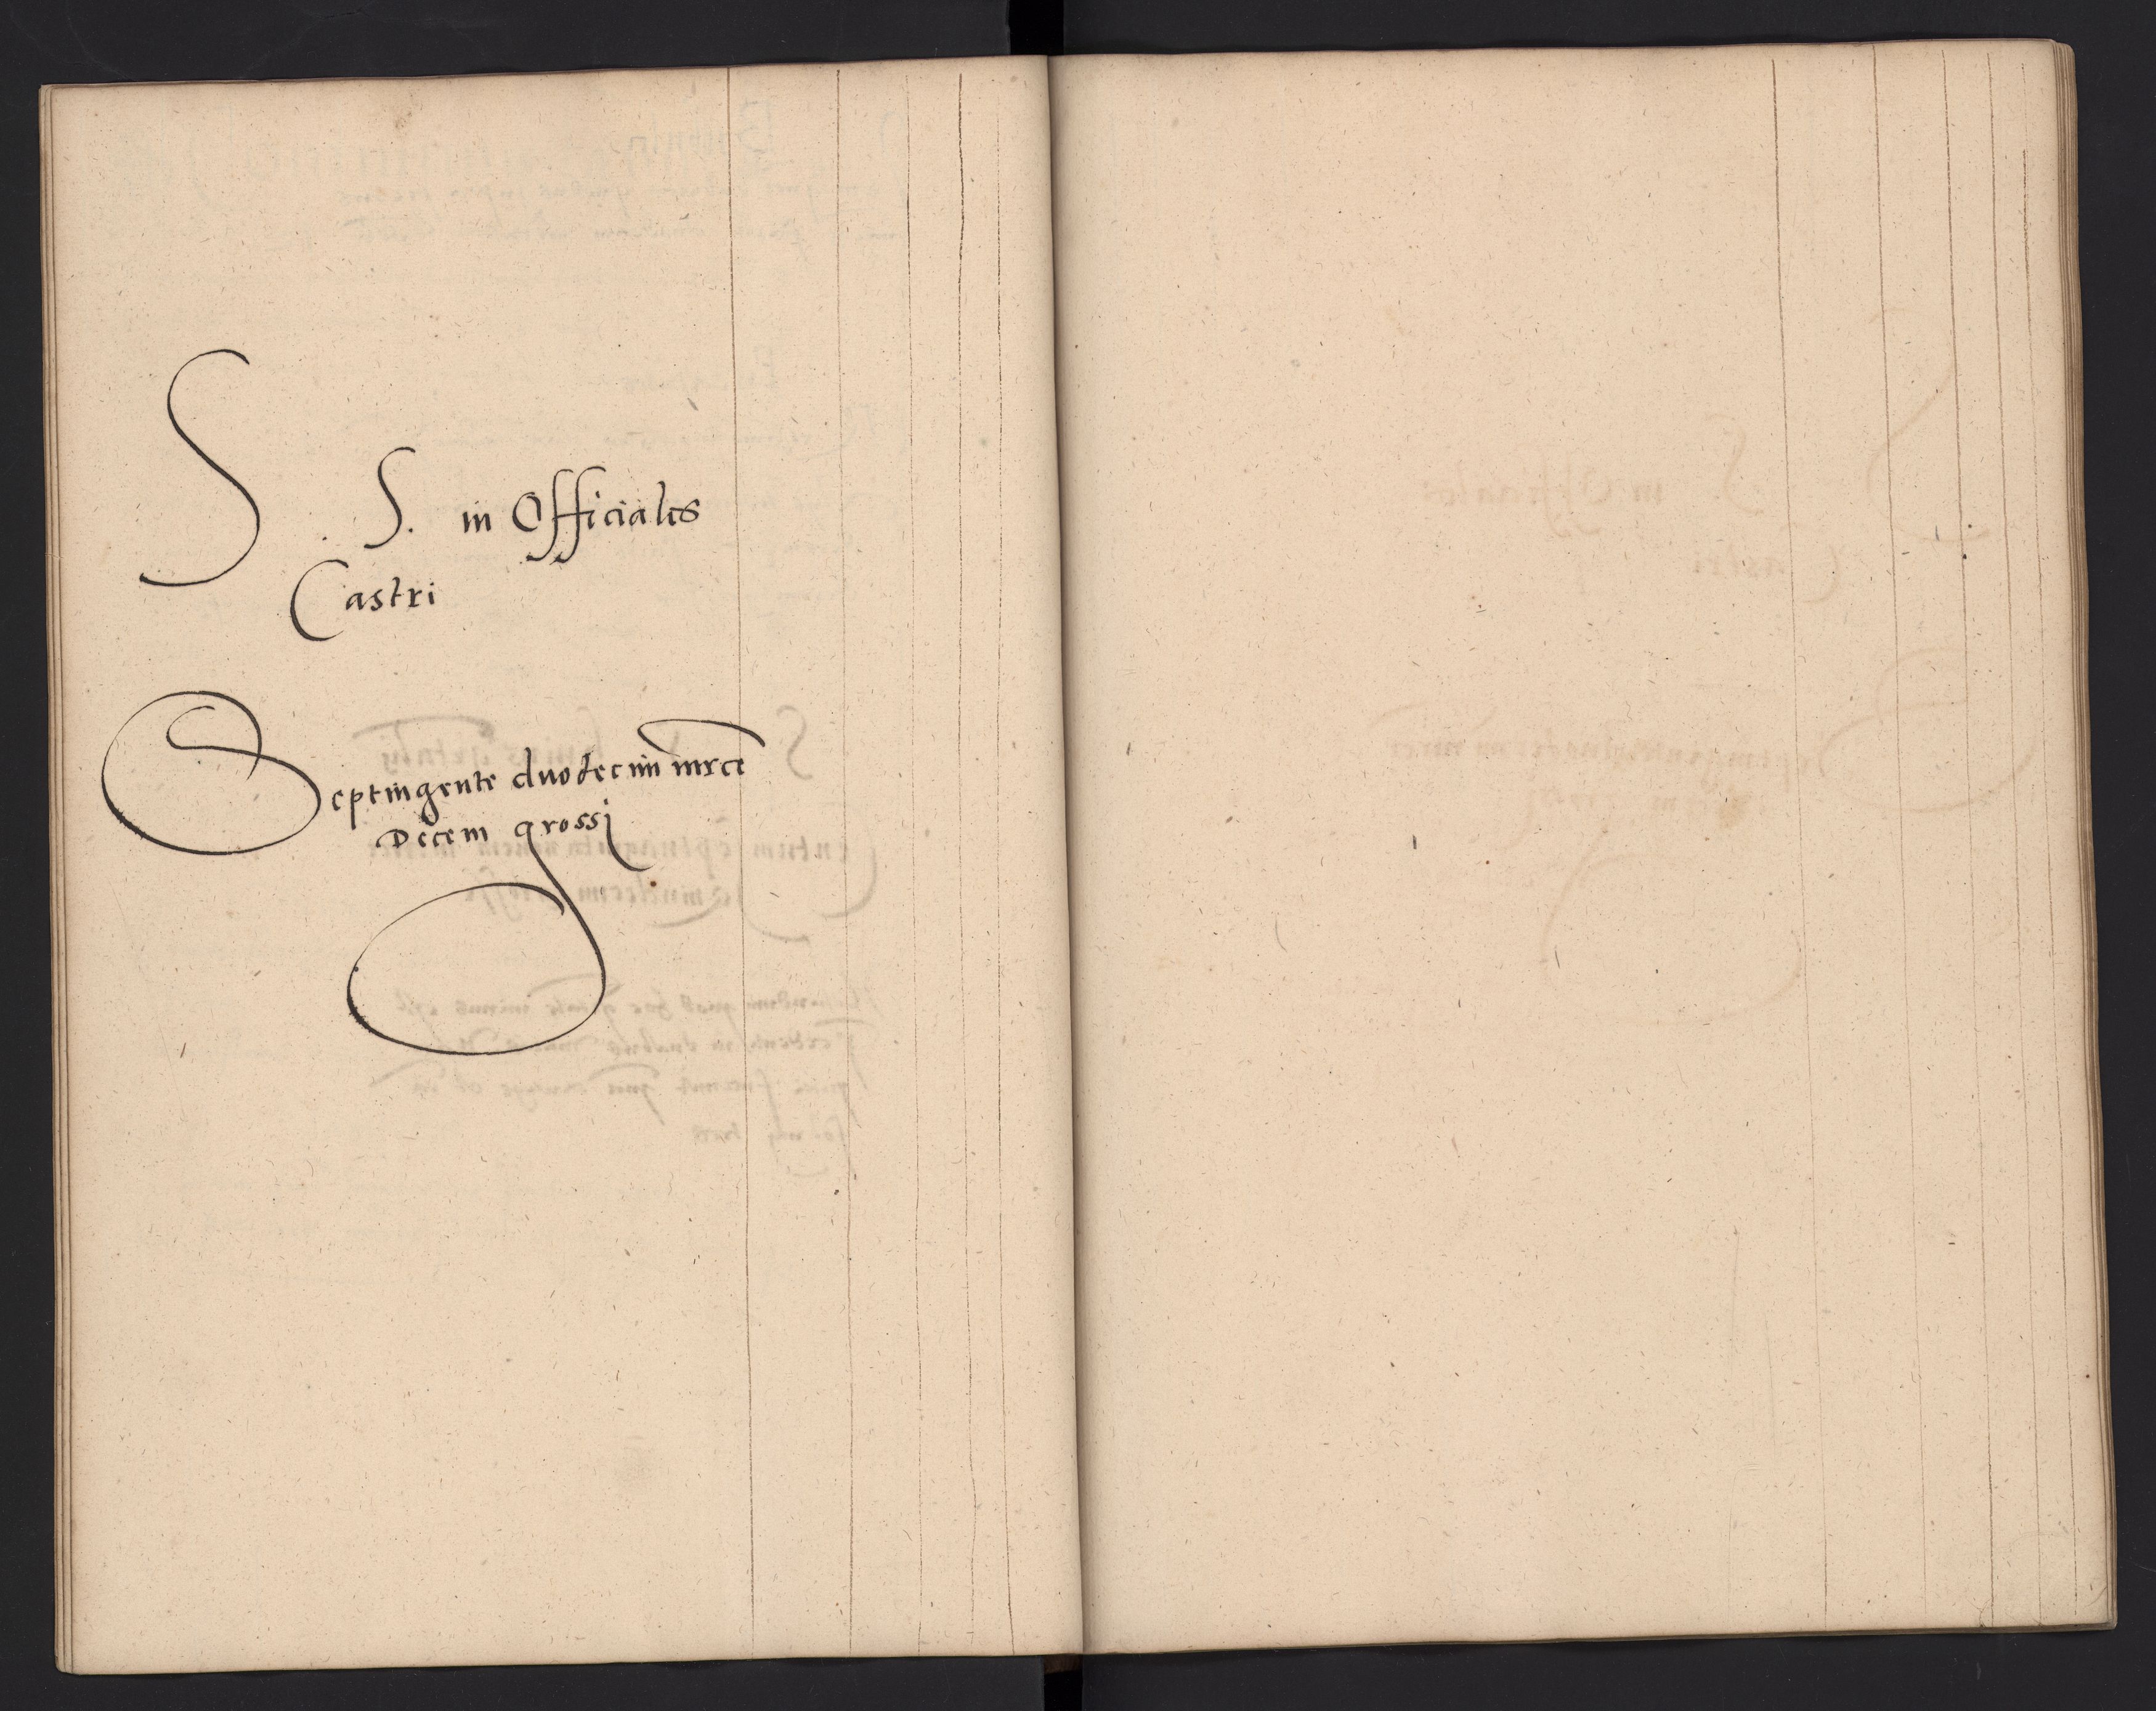 S. S. in Officiales
Castri
Septingente duodecim mrce
Decem grossi